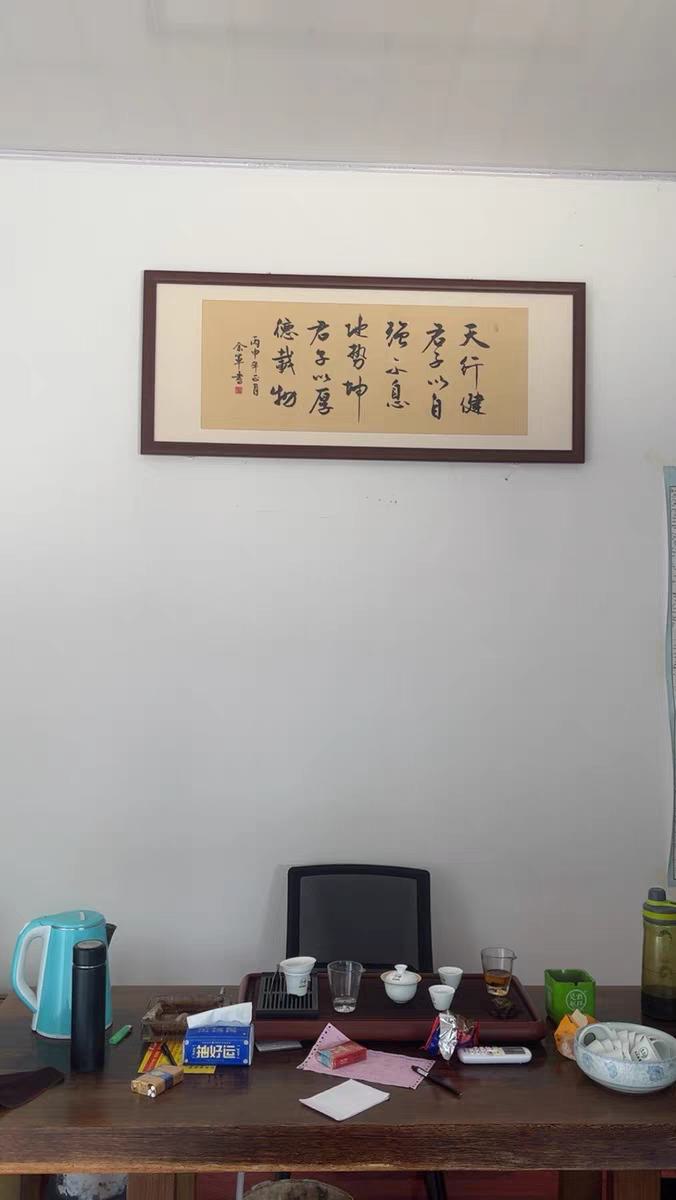 天行健
君子以自
强不息
地势坤
君子以厚
德载物
丙申年正月
余军书
抽好运